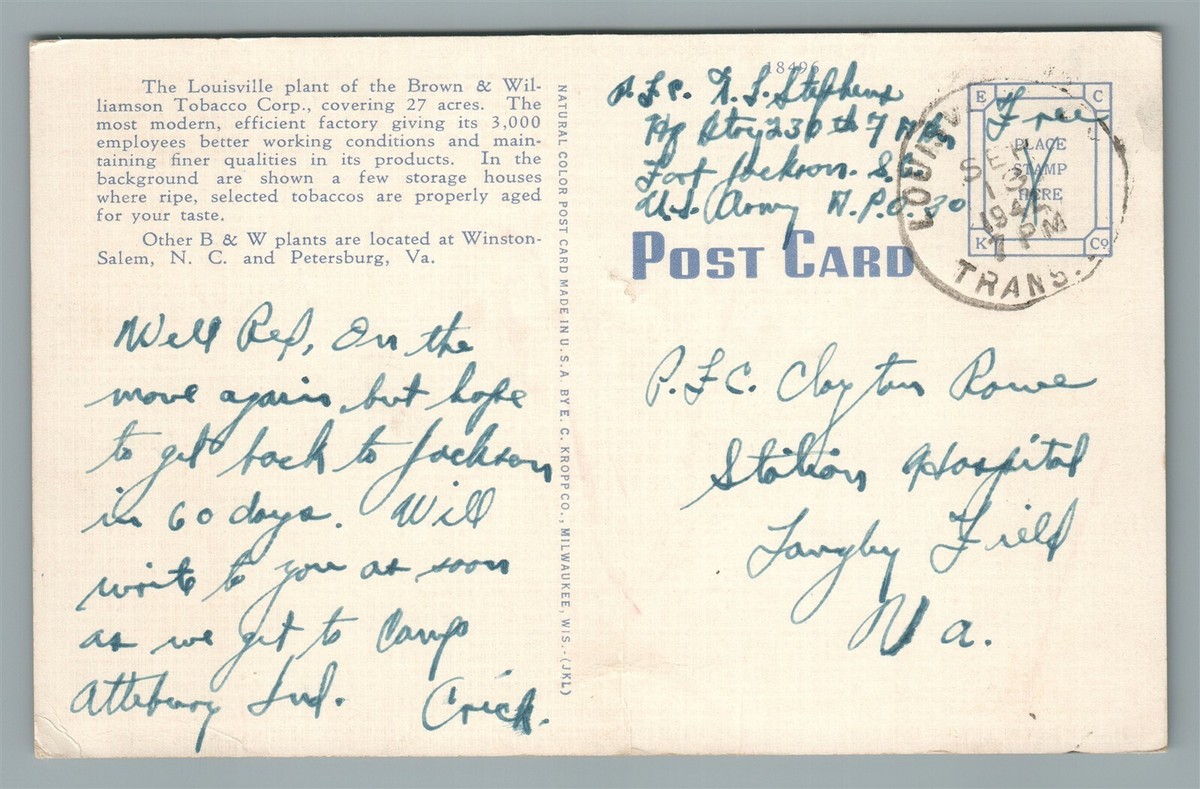 The Louisville plant of the Brown & Wil-
liamson Tobacco Corp., covering 27 acres. The
most modern, efficient factory giving its 3,000
employees better working conditions and main-
taining finer qualities in its products. In the
background are shown a few storage houses
where ripe, selected tobaccos are properly aged
for your taste.
Other B & W plants are located at Winston-
Salem, N. C. and Petersburg, Va.
Well Red, On the
move again, but hope
to get back to Jackson
in 60 days. Will
write to you as soon
as we get to Camp
Atteburg Ind. Crick.
NATURAL COLOR POST CARD MADE IN U.S.A. BY E. C. KROPP CO., MILWAUKEE, WIS.-(JKL)
18496
Stephens
Hq Btry 230th F A Bn
Fort Jackson. S.C.
U.S. Army A.P.O. 30
POST CARD
E C
Free
PLACE
STAMP
HERE
K Co
SEP
1
7 PM
TRANS.
P.F.C. Clayton Rowe
Station Hospital
Langley Field
Va.